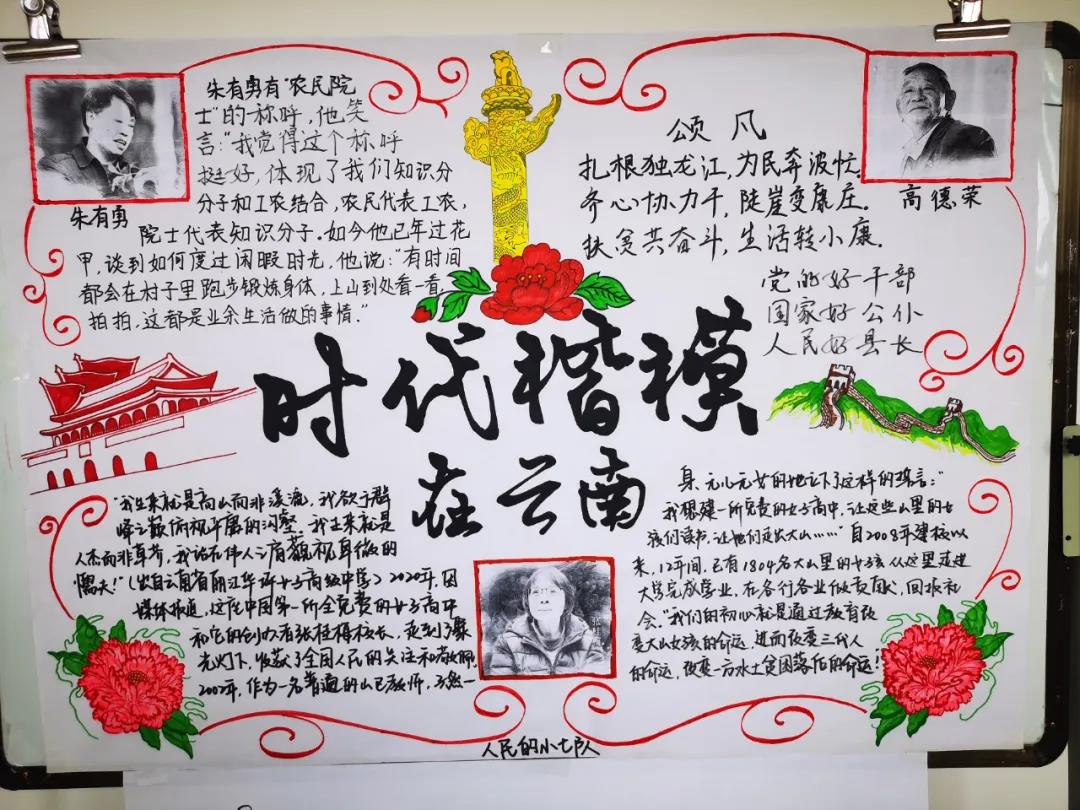 朱有勇有"农民院
士"的称呼，他笑
言："我觉得这个称呼
挺好，体现了我们知识分
分子和工农结合，农民代表工农，
院士代表知识分子。如今他已年过花
甲，谈到如何度过闲暇时光，他说："有时间
都会在村子里跑步锻炼身体，上山到处看一看，
拍拍，这都是业余生活做的事情."
朱有勇
颂 风
扎根独龙江，为民奔波忙.
齐心协力干，陡崖变康庄.
扶贫共奋斗，生活转小康.
党的好干部
国家好公仆
人民好县长
高德荣
时代楷模
在云南
"我生来就是高山而非溪流，我欲于群
峰之巅俯视平庸的沟壑.我生来就是
人杰而非草芥，我站在伟人之肩藐视卑微的
懦夫!"(出自云南省丽江华坪女子高级中学)2020年，因
媒体报道，这在中国第一所全免费的女子高中
和它的创办者张桂梅校长，走到了聚
光灯下，收获了全国人民的关注和
2002年，作为一名普通的山区教师，孑然一
身，无儿无女的她立下了这样的
"我想建一所免费的女子高中，让这些山里的女
孩们读书，让她们走出大山……"自2008年建校以
来，12年间，已有1804名大山里的女孩从这里走进
大学完成学业，在各行各业做贡献，回报社
会."我们的初心就是通过教育改
变大山女孩的命运，进而改变三代人
的命运，改变一方水土贫困落后的命运!
人民的小七队